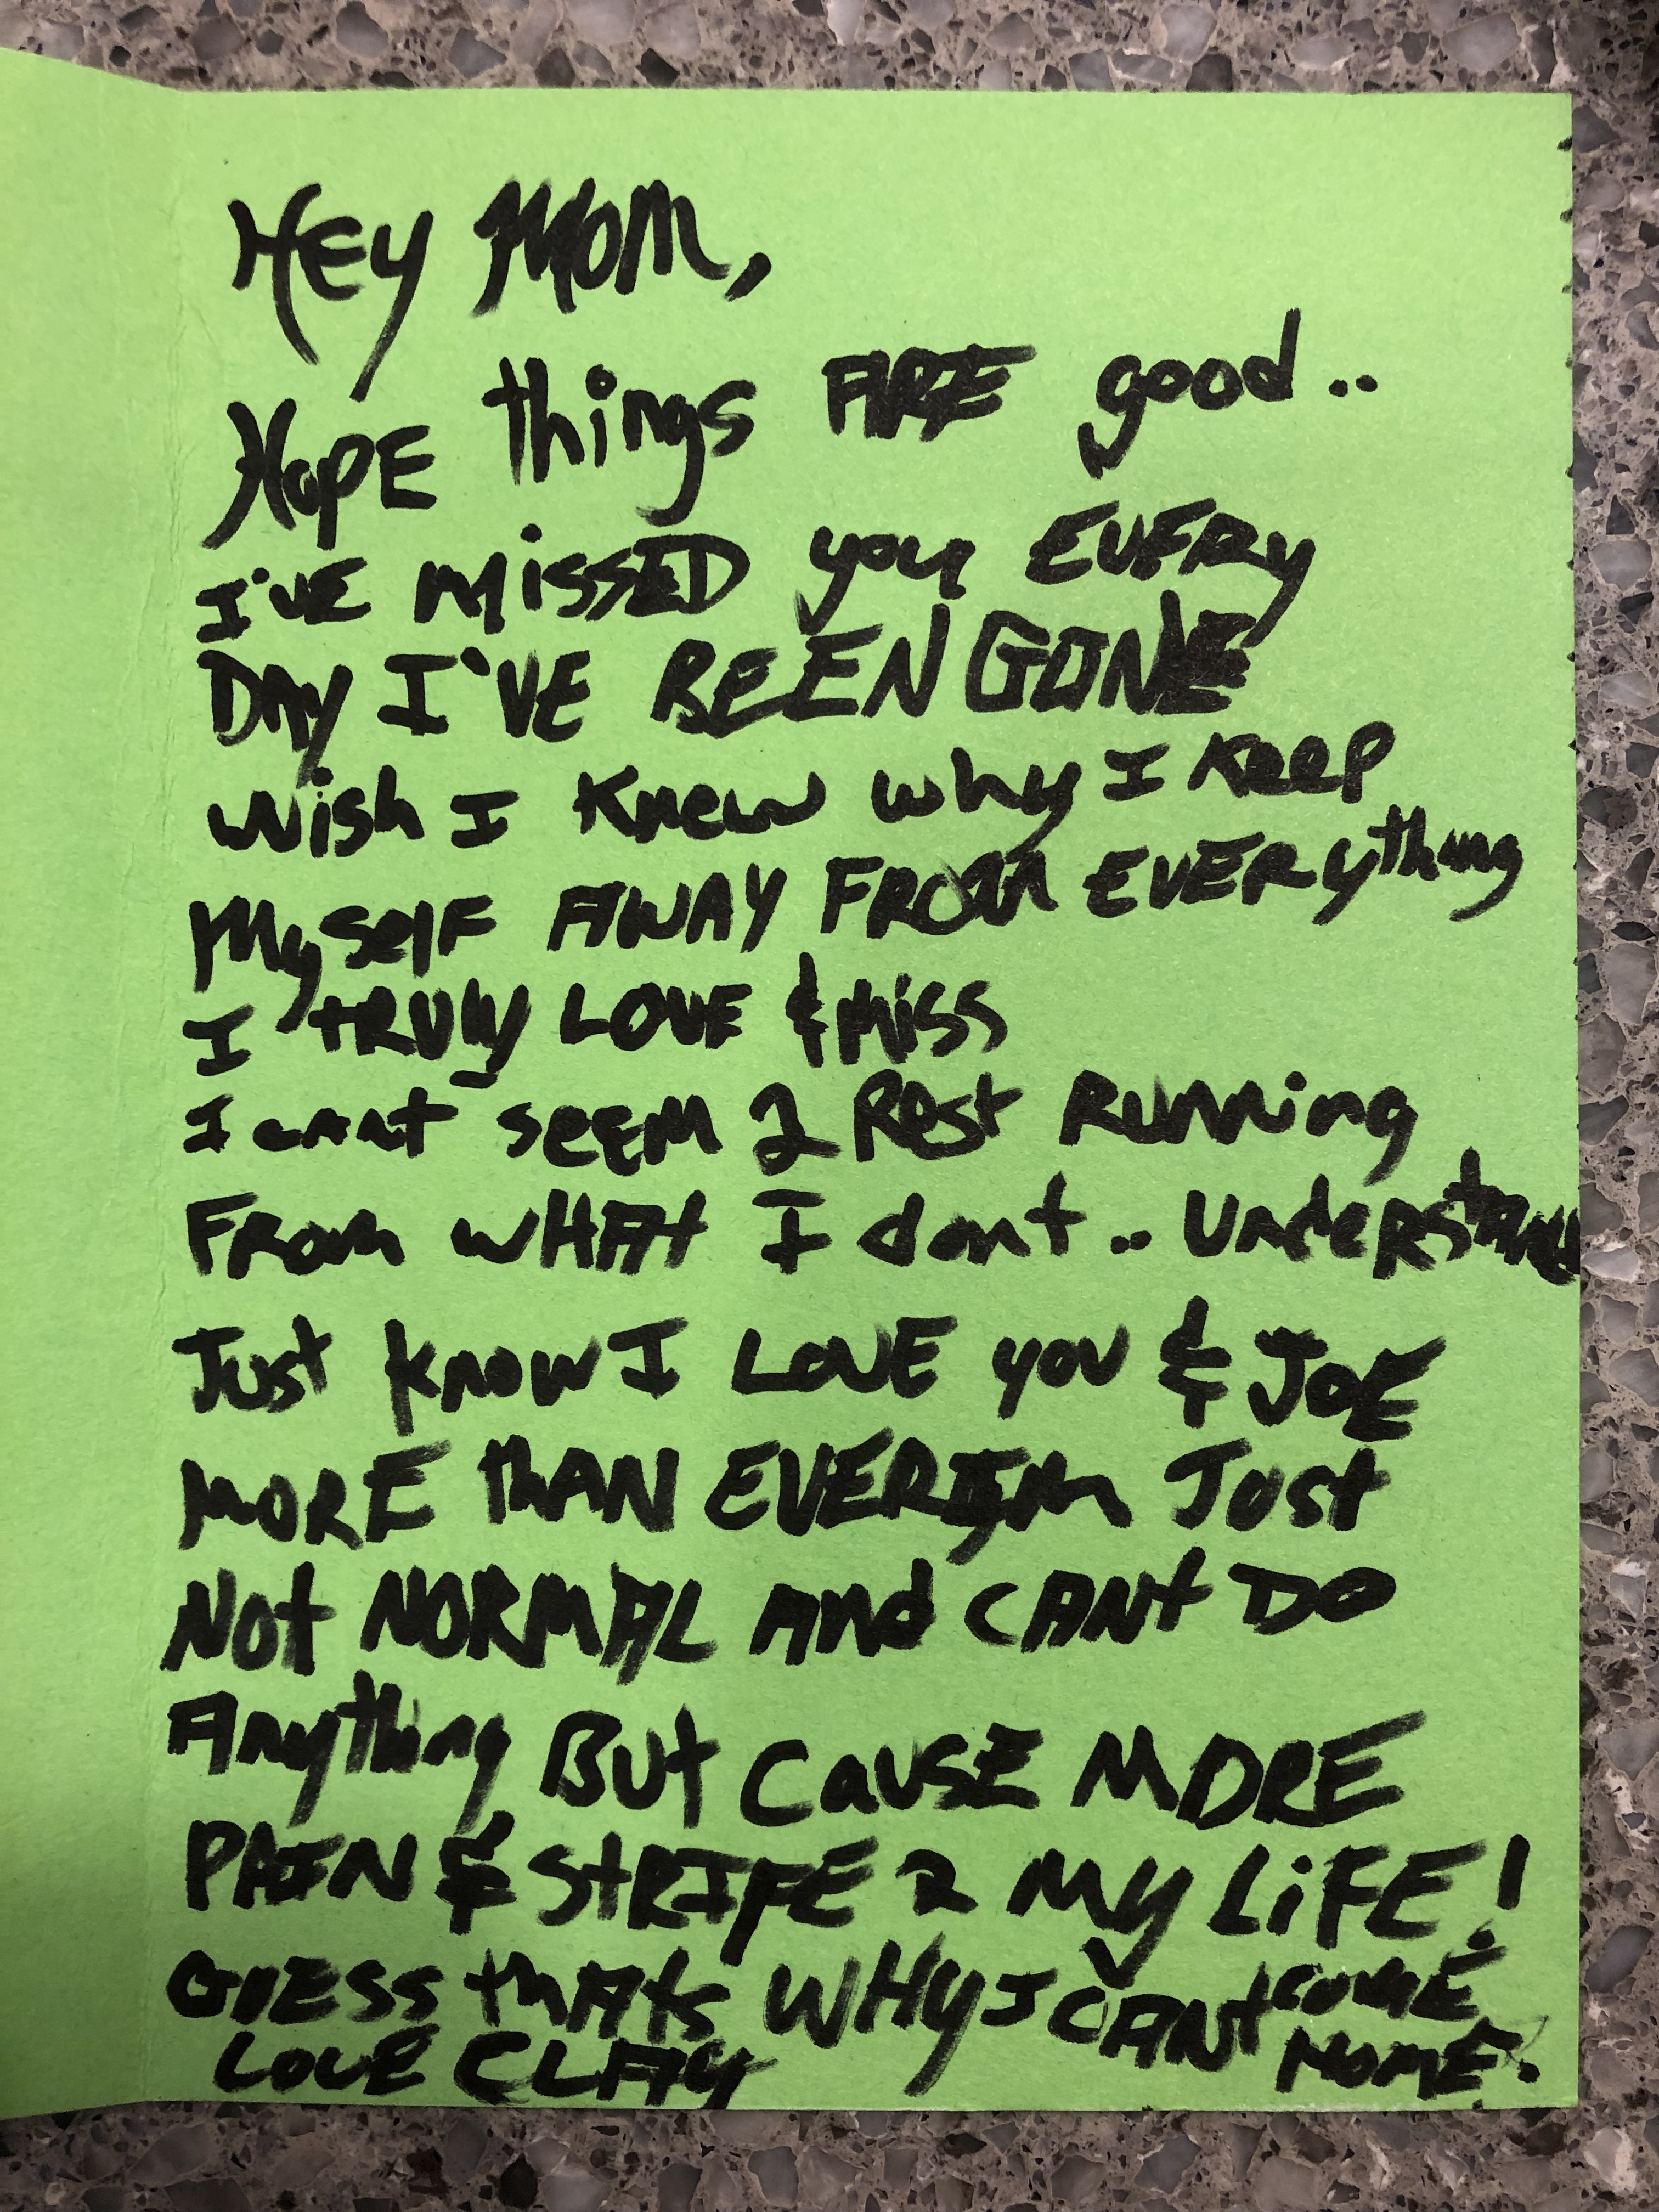 Hey Mom,
Hope things ARE good..
I've missED you EVERy
DAy I'VE BEEN GONE
wish I Knew why I Keep
MyselF AWAY FROM EVERything
I tRUly LOVE & Miss
I cant seem 2 Rest Running
From wHAt I dont.. Understand
Just know I LOVE you & JOE
MORE thAN EVER Im Just
Not NORMAL And CANt DO
Anything But Cause MORE
PAIN & StRIFE 2 My LiFE!
GUESS thAts WHy I CANt COME
LOVE CLAy HOME.